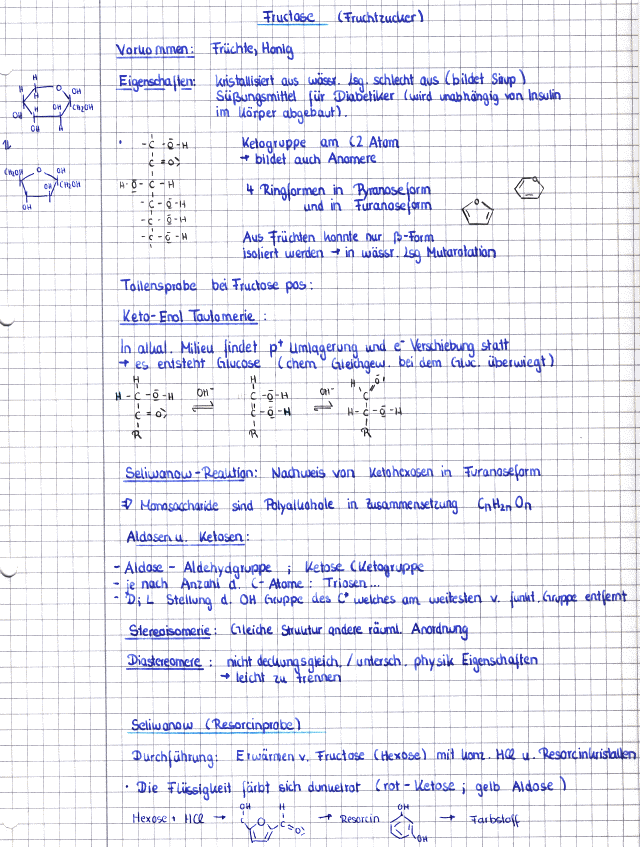 Fructose (Fruchtzucker)
Vorkommen: Früchte, Honig
Eigenschaften: kristallisiert aus wässr. Lsg. schlecht aus (bildet Sirup)
Süßungsmittel für Diabetiker (wird unabhängig von Insulin
im Körper abgebaut).
Ketogruppe am C2 Atom
→ bildet auch Anomere
4 Ringformen in Pyranoseform
und in Furanoseform
Aus Früchten konnte nur β-Form
isoliert werden → in wässr. Lsg Mutarotation
Tollensprobe bei Fructose pos:
Keto-Enol Tautomerie:
In alkal. Milieu findet p⁺ Umlagerung und e⁻ Verschiebung statt
→ es entsteht Glucose (chem Gleichgew. bei dem Gluc. überwiegt)
OH⁻ OH⁻
Seliwanow-Reaktion: Nachweis von Ketohexosen in Furanoseform
⇒ Monosaccharide sind Polyalkohole in Zusammensetzung CnH2nOn
Aldosen u. Ketosen:
- Aldose - Aldehydgruppe ; Ketose (Ketogruppe
- je nach Anzahl d. C-Atome: Triosen...
- D; L Stellung d. OH Gruppe des C* welches am weitesten v. funkt. Gruppe entfernt
Stereoisomerie: Gleiche Struktur andere räuml. Anordnung
Diastereomere: nicht deckungsgleich. / untersch. physik Eigenschaften
→ leicht zu trennen
Seliwanow (Resorcinprobe)
Durchführung: Erwärmen v. Fructose (Hexose) mit konz. HCl u. Resorcinkristallen
· Die Flüssigkeit färbt sich dunkelrot (rot-Ketose ; gelb Aldose)
Hexose + HCl → → Resorcin → Farbstoff